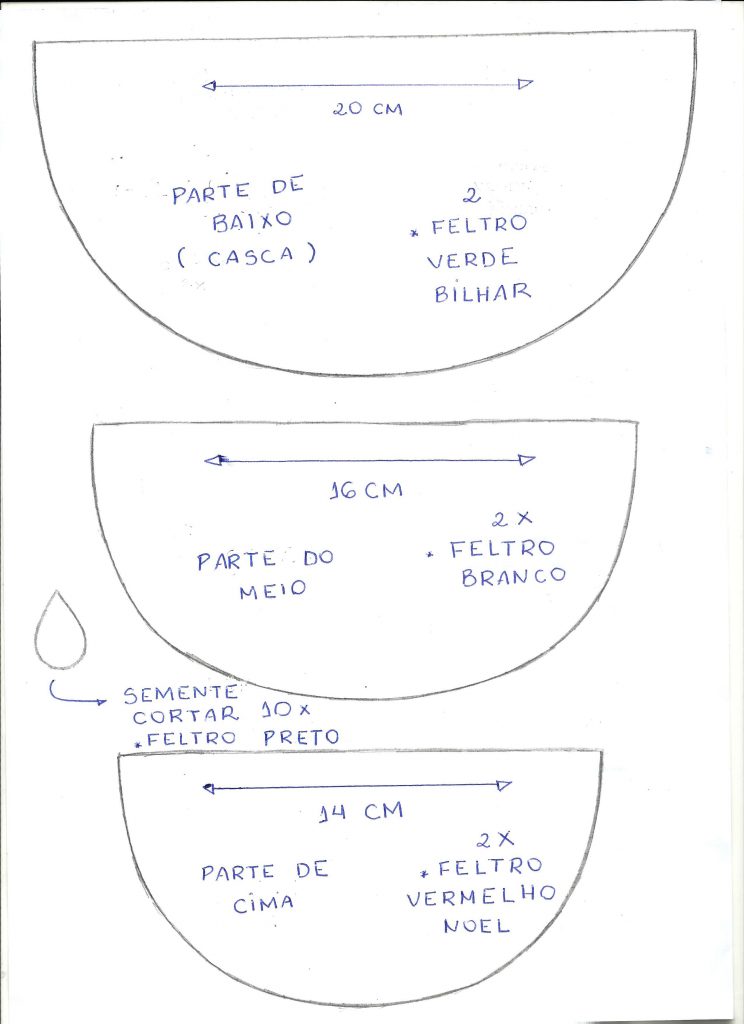 20 CM
PARTE DE
BAIXO
( CASCA )
2
* FELTRO
VERDE
BILHAR
16 CM
PARTE DO
MEIO
2 X
* FELTRO
BRANCO
SEMENTE
CORTAR 10 x
* FELTRO PRETO
14 CM
PARTE DE
CIMA
2 X
* FELTRO
VERMELHO
NOEL